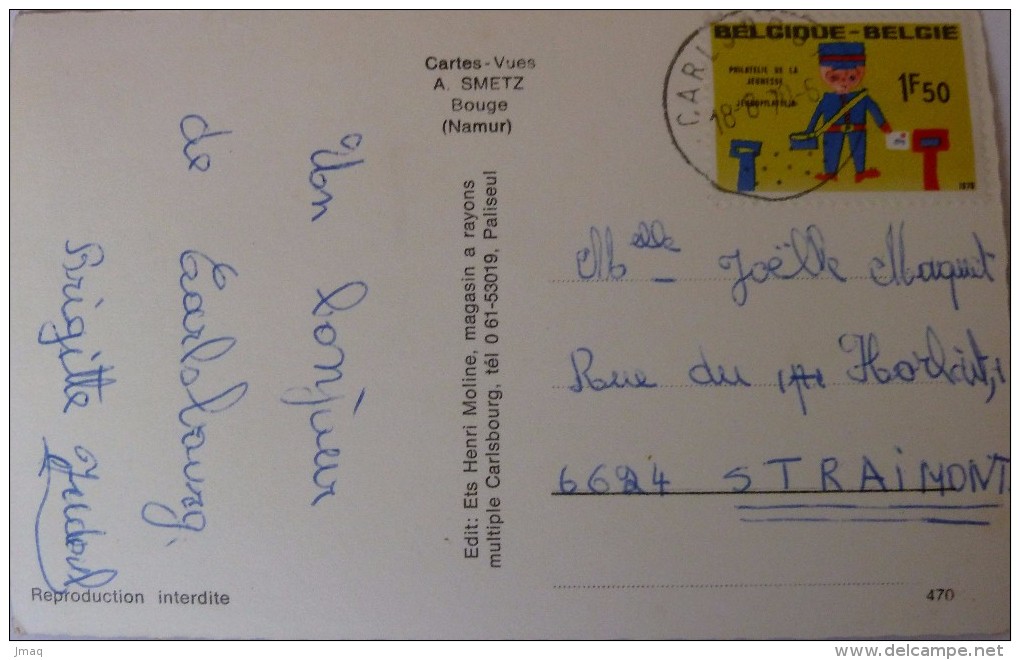 Cartes-Vues
A. SMETZ
Bouge
(Namur)
BELGIQUE-BELGIE
PHILATELIE DE LA
JEUNESSE
JEUGDFILATELIE
1F50
1970
18-8-70-6
Un bonjour
de Carlsbourg.
Brigitte
Edit: Ets Henri Moline, magasin a rayons
multiple Carlsbourg, tél 061-53019, Paliseul
Melle Joëlle Maquet
Rue du
6624 STRAIMONT
Reproduction interdite
470
jmaq
delcampe.net